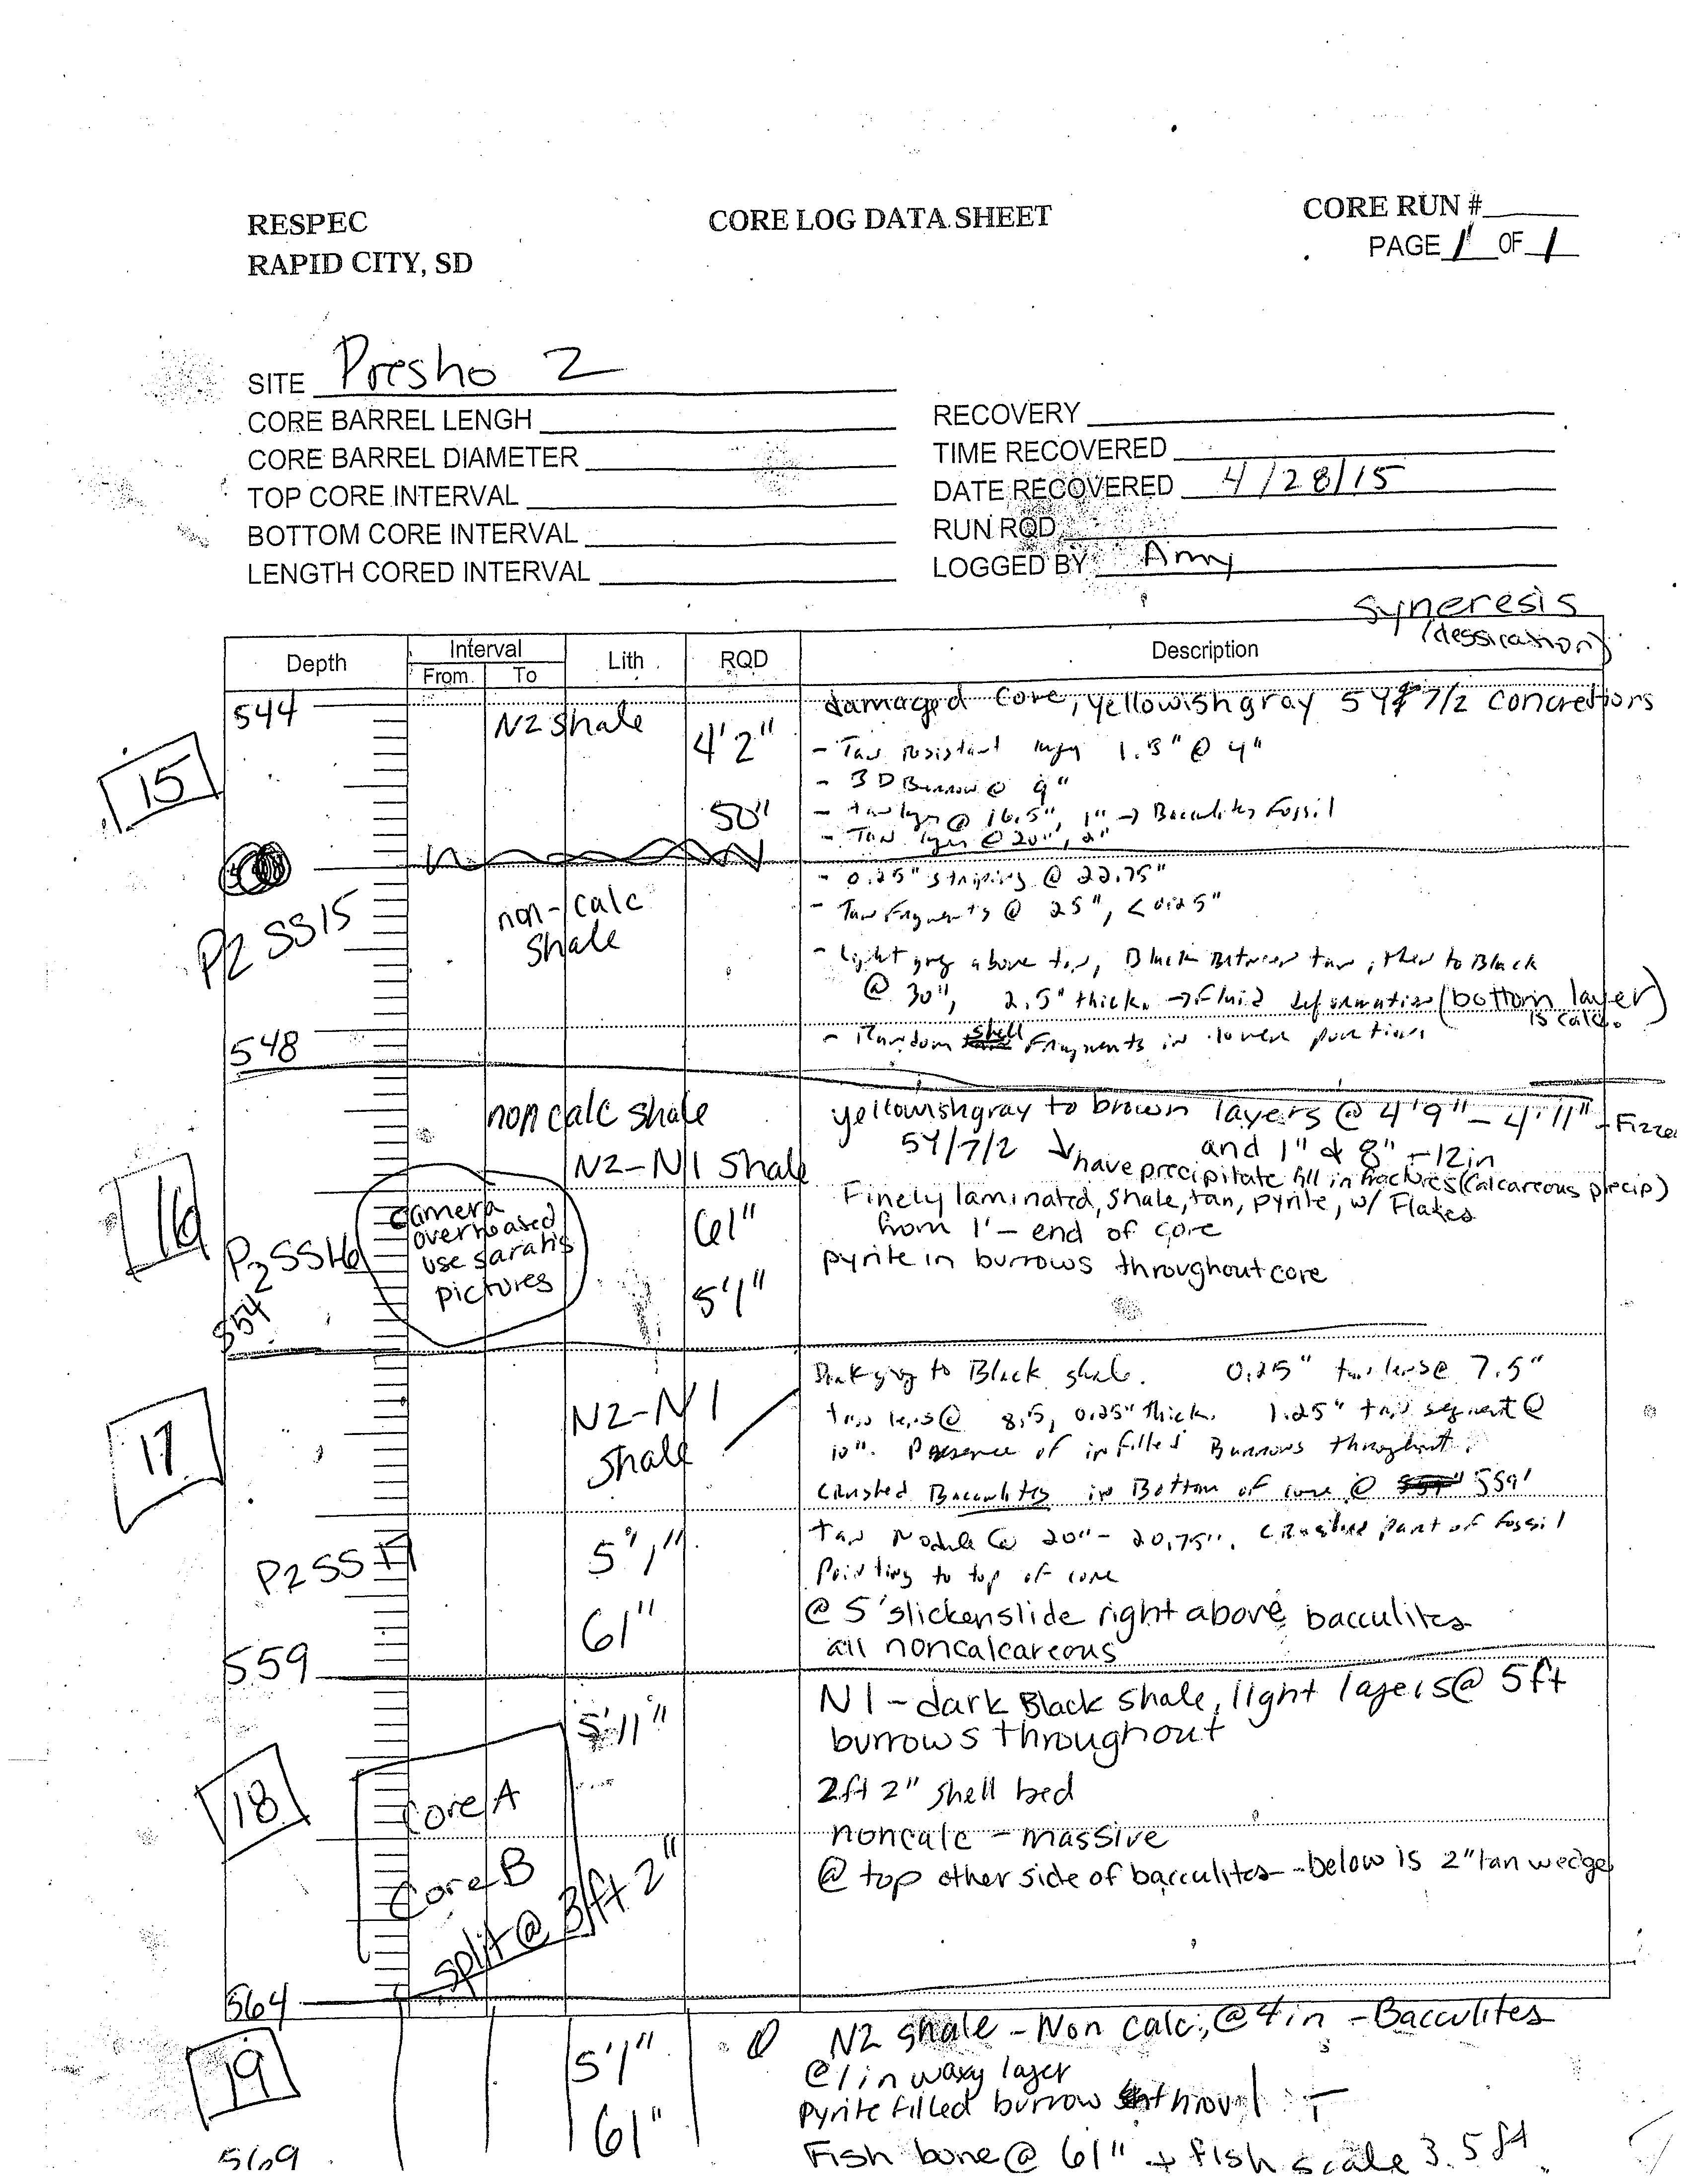 RESPEC
RAPID CITY, SD
CORE LOG DATA SHEET
CORE RUN #
PAGE 1 OF 1
SITE Presho 2
CORE BARREL LENGH
CORE BARREL DIAMETER
TOP CORE INTERVAL
BOTTOM CORE INTERVAL
LENGTH CORED INTERVAL
RECOVERY
TIME RECOVERED
DATE RECOVERED 4/28/15
RUN RQD
LOGGED BY Amy
Syneresis
(dessication)
Depth Interval From To Lith RQD Description
544
15
P2 SS15
548
N2 shale
4'2"
50"
non-calc
shale
damaged core, yellowish gray 5Y 7/2 concretions
- Tan resistant 1.3" @ 4"
- 3D Burrow @ 9"
- tan layer @ 16.5", 1" → Bacculites Fossil
- Tan layer @ 20", 2"
- 0.25" striping @ 22.75"
- Tan Fragments @ 25", < 0.25"
- Light gray above tan, Black Between tan, then to Black
@ 30", 2.5" thick. → Fluid deformation (bottom layer
is calc.)
- Random shell Fragments in lower portion
16
P2SS16
554
non calc shale
N2-N1 Shale
camera
overheated
use sarah's
pictures
61"
5'1"
yellowish gray to brown layers @ 4'9" - 4'11" - Fizzes
5Y/7/2 and 1" & 8" - 12in
have precipitate fill in fractures (calcareous precip)
Finely laminated, shale, tan, pyrite, w/ Flakes
from 1' - end of core
pyrite in burrows throughout core
17
P2SS17
559
N2-N1
Shale
5'1"
61"
Dark gray to Black shale. 0.25" tan lens @ 7.5"
tan lens @ 8.5, 0.25" thick. 1.25" tan segment @
10". Presence of infilled Burrows throughout.
Crushed Bacculites in Bottom of core @ 559'
tan Nodule @ 20" - 20.75". Crushed part of fossil
Pointing to top of core
@ 5' slickenslide right above bacculites
all noncalcareous
18
564
5'11"
Core A
Core B
split @ 3ft 2"
N1 - dark Black shale, light layers @ 5ft
burrows throughout
2ft 2" shell bed
noncalc - massive
@ top other side of bacculites - below is 2" tan wedge
19
569
5'1"
61"
N2 shale - Non calc, @ 4in - Bacculites
@ 1in waxy layer
pyrite filled burrow
Fish bone @ 61" + fish scale 3.5ft